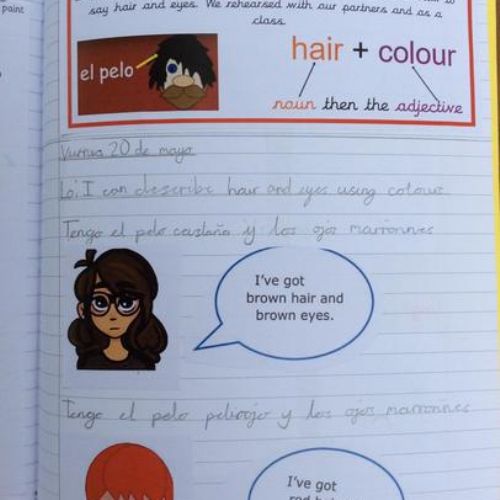 paint
say hair and eyes. We rehearsed with our partners and as a
class.
el pelo
hair + colour
noun then the adjective
20 de mayo
I can describe hair and eyes using colour
Tengo el pelo castaño y los ojos marronnes
I've got
brown hair and
brown eyes.
Tengo el pelo pelirrojo y los ojos marronnes
I've got